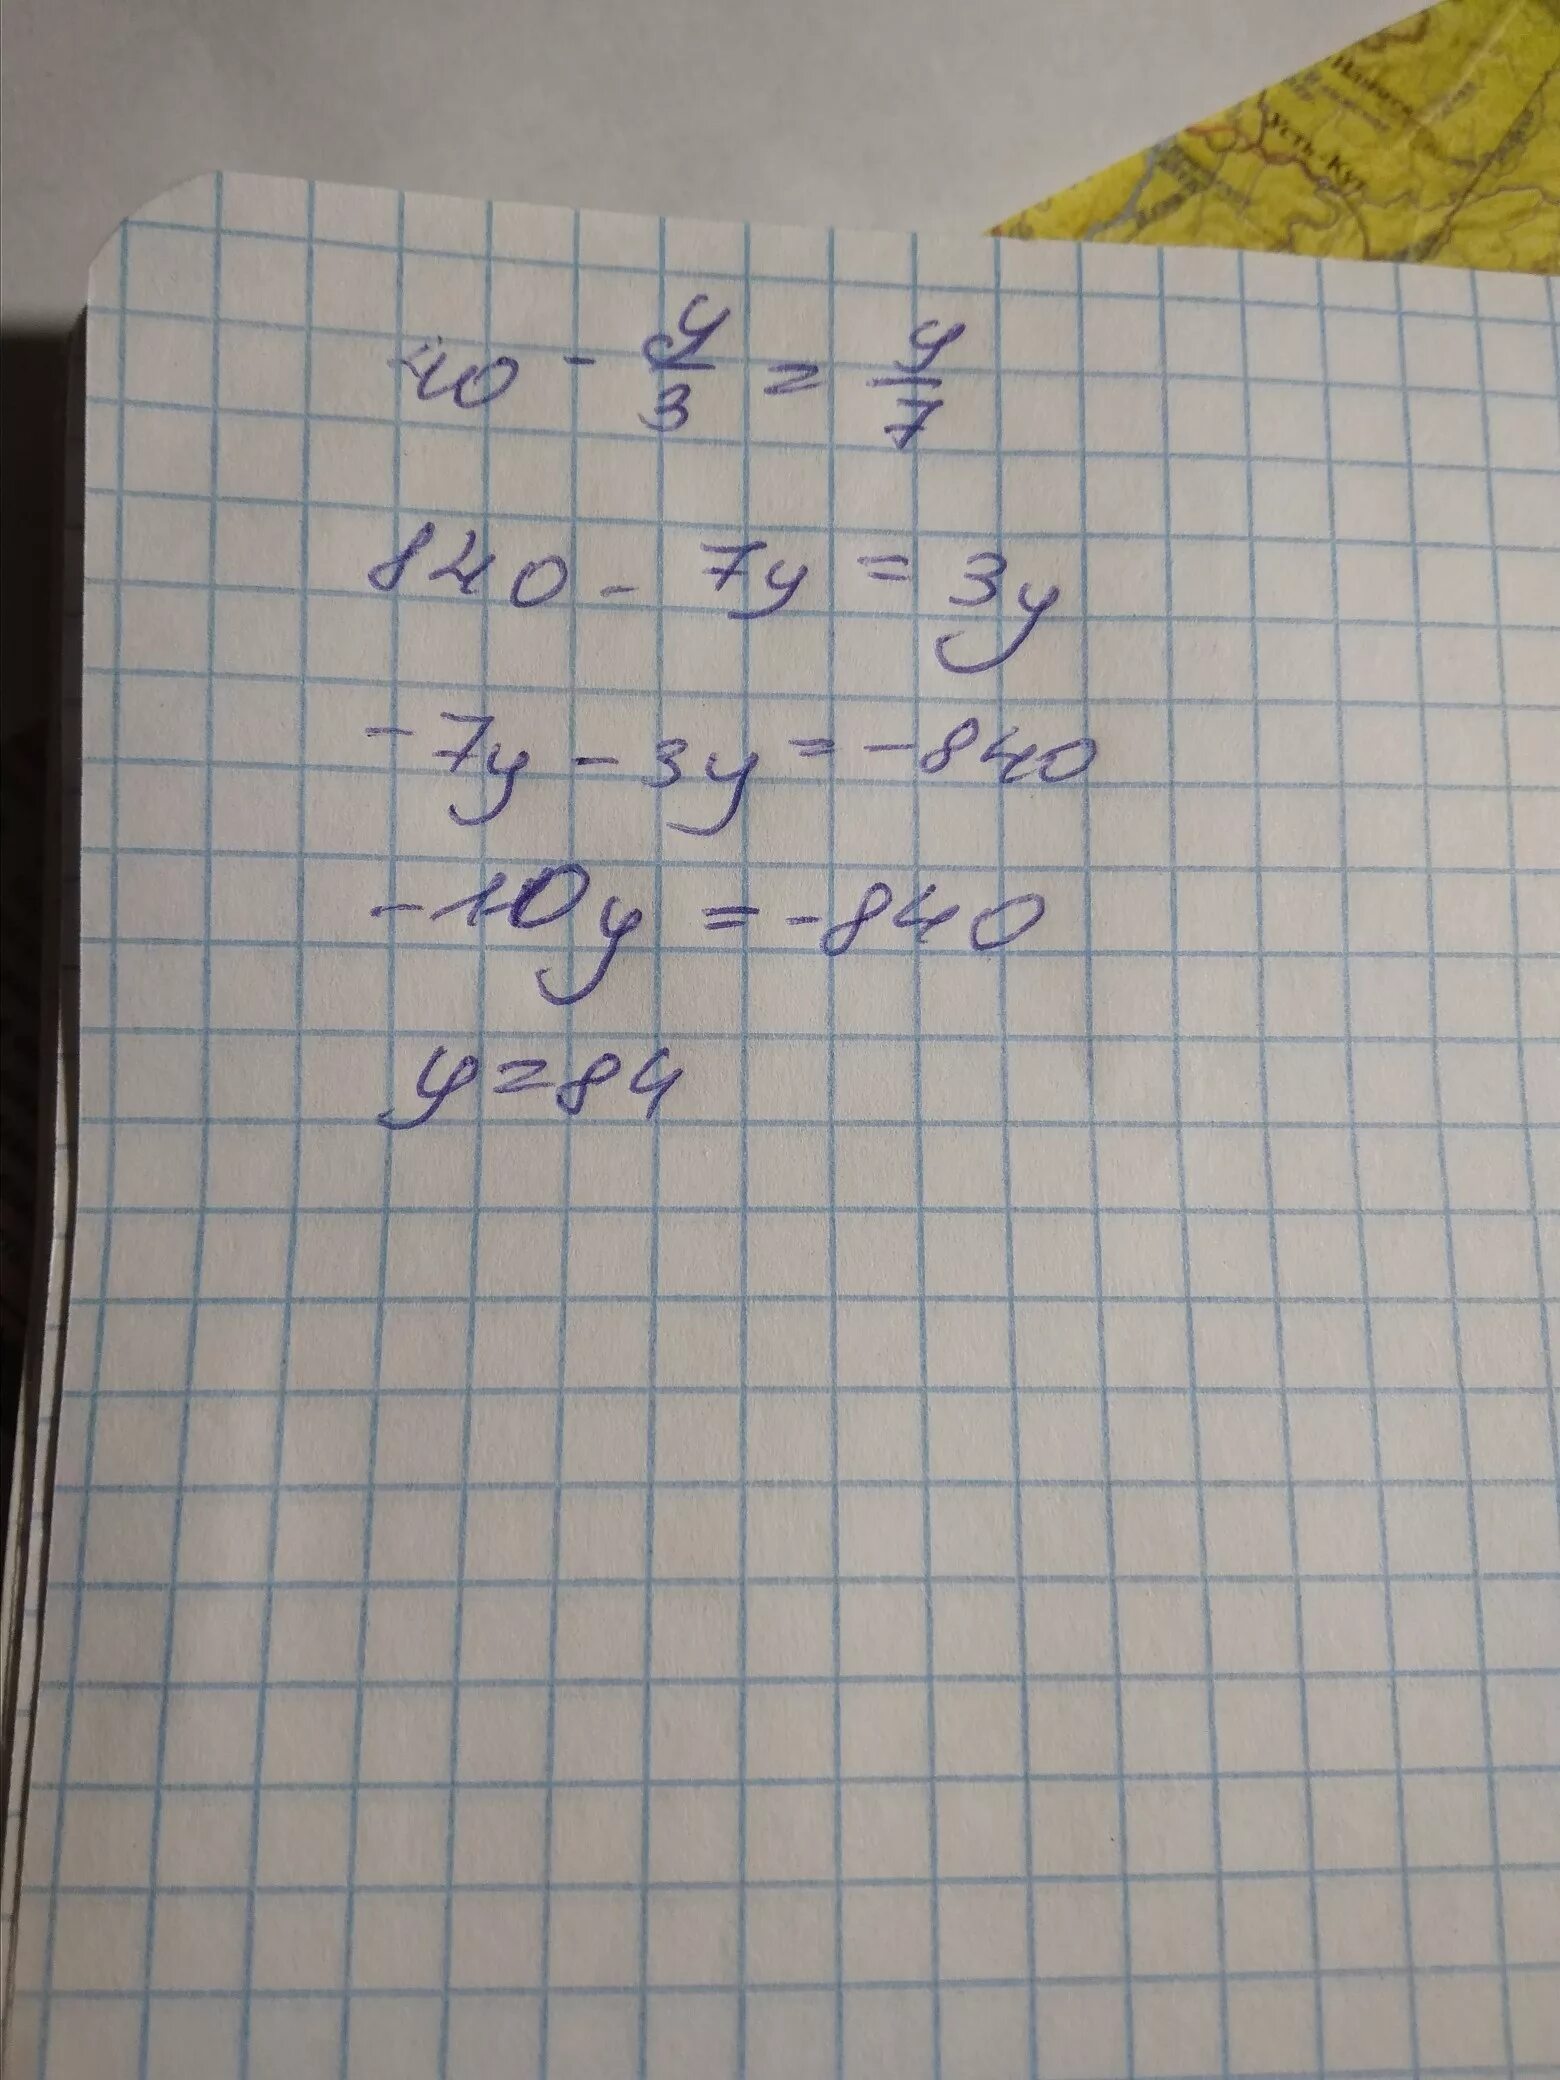 Усть-Кут
40 - y/3 = y/7
840 - 7y = 3y
-7y - 3y = -840
-10y = -840
y = 84